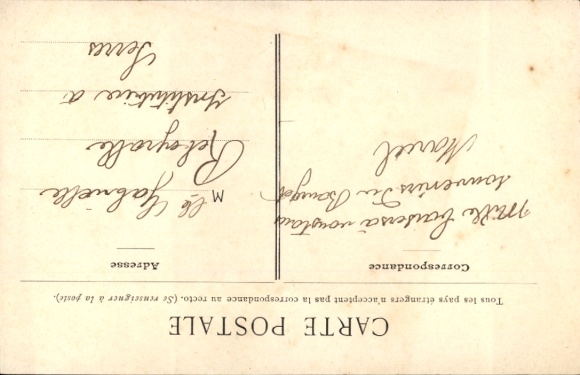 CARTE POSTALE
Tous les pays étrangers n'acceptent pas la correspondance au recto. (Se renseigner à la poste).
Correspondance
Mille baisers à vous tous
souvenirs du
Marcel
Adresse
Mlle Gabrielle
Institutrice à
Serres